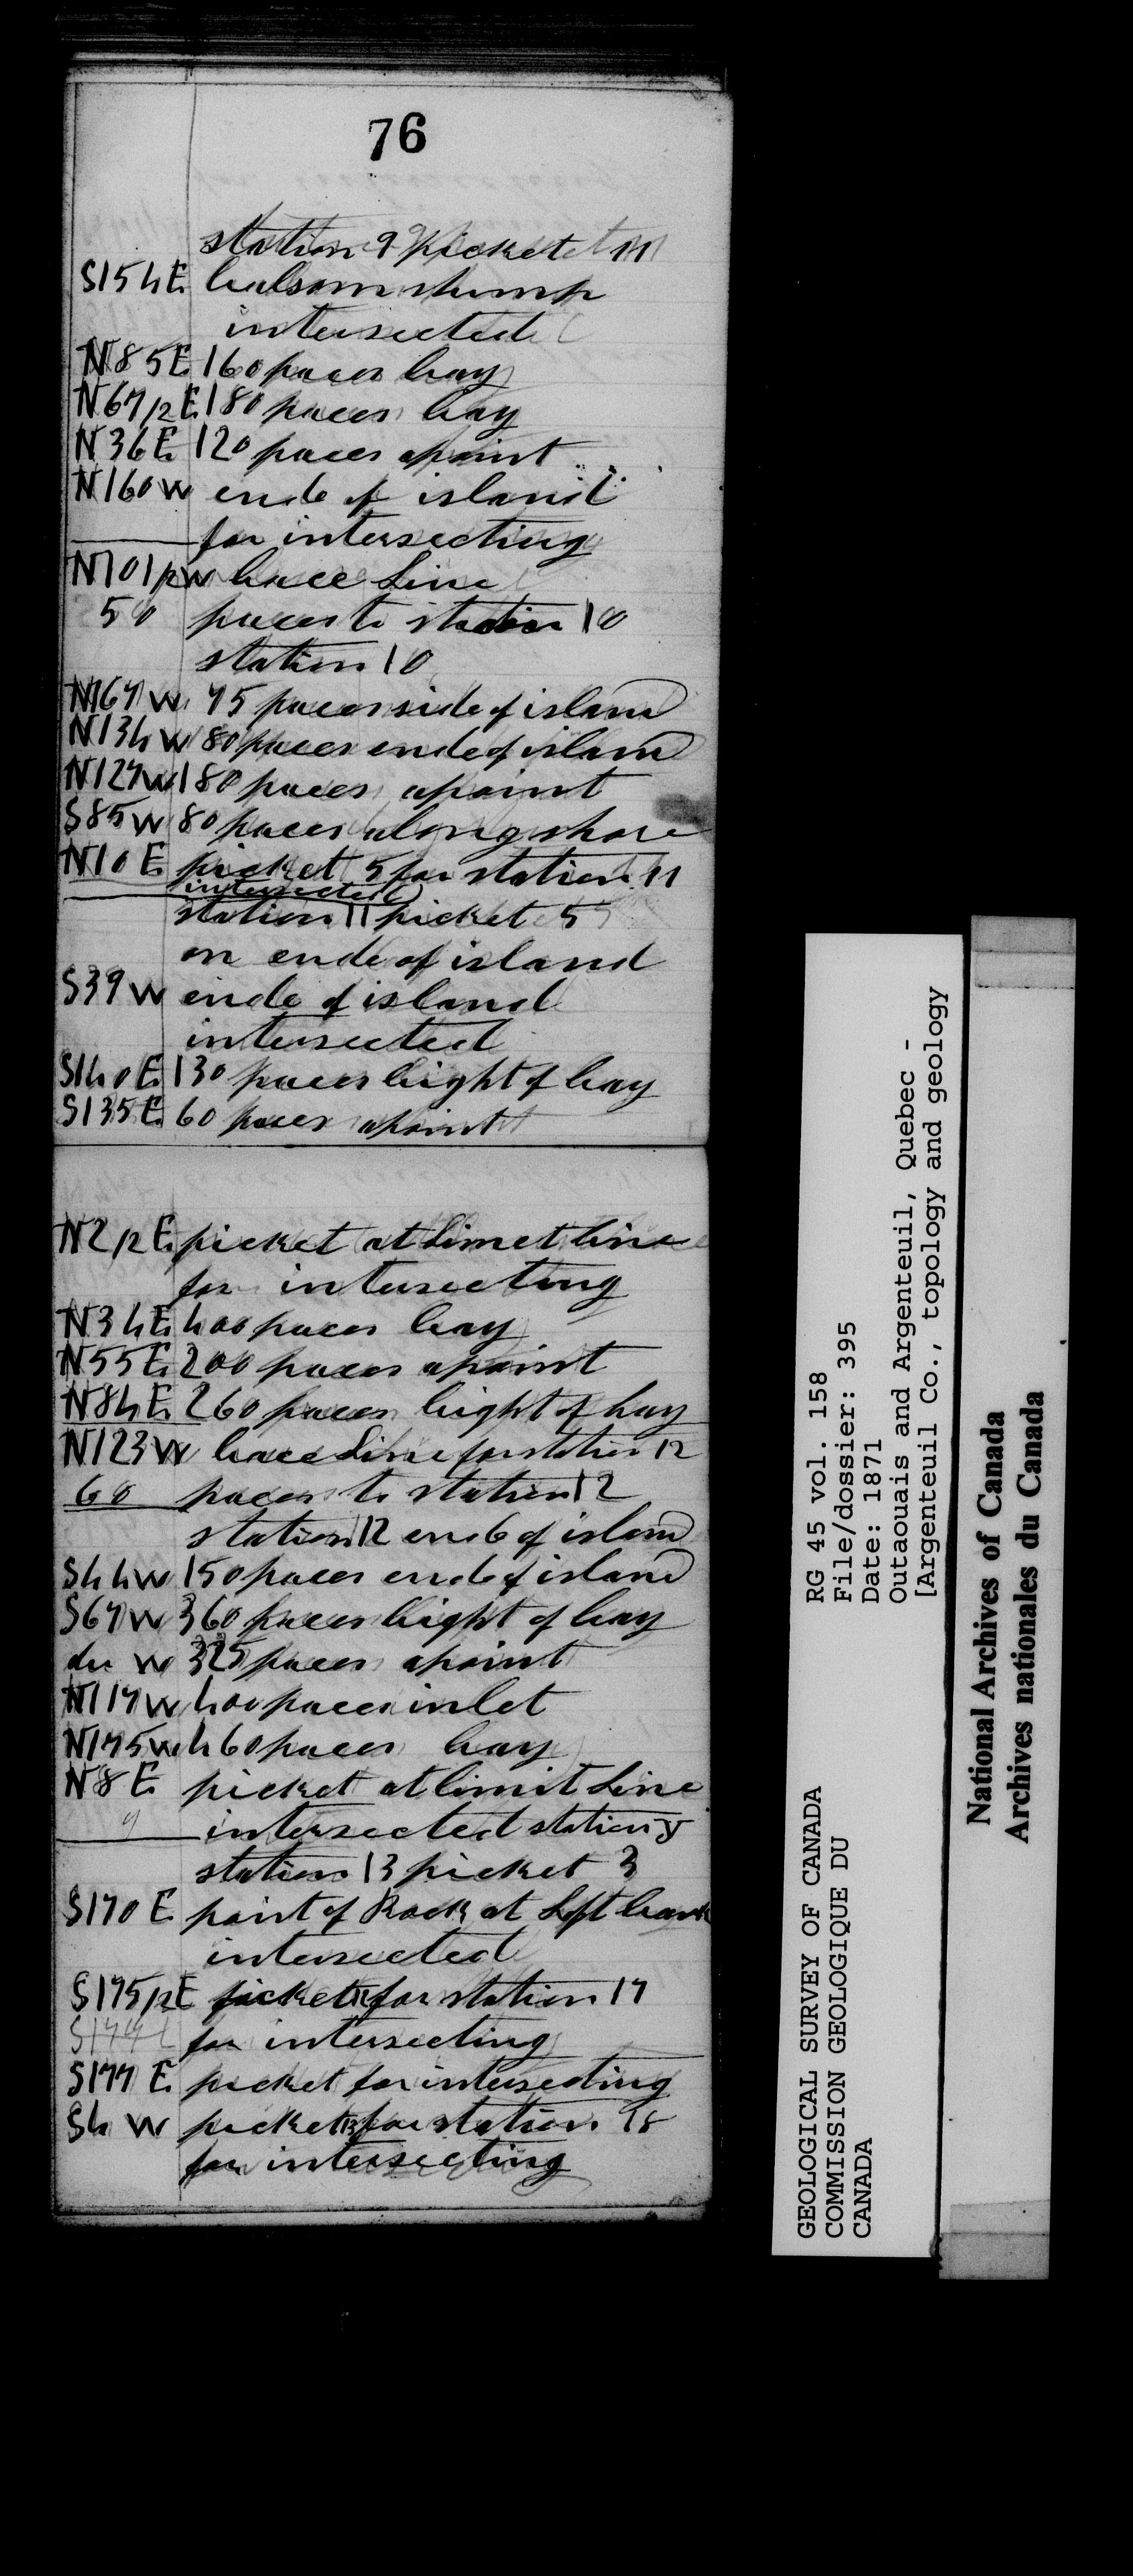 76
station 9 picket 11
S154E balsom stump
intersected
N85E 160 paces bay
N671/2E 180 paces bay
N36E 120 paces apoint
N160W ende of island
for intersecting
N701/2W bace Line
50 paces to station 10
station 10
N167W 75 paces side of island
N134W 80 paces ende of island
N127W 180 paces apoint
S85W 80 paces along shore
N10E picket 5 for station 11
intersected
station 11 picket 5
on ende of island
S39W ende of island
intersected
S140E 130 paces bight of bay
S135E 60 paces apoint
N21/2E picket at Limet Line
for intersecting
N34E 400 paces bay
N55E 200 paces apoint
N84E 260 paces bight of bay
N123W bace Line for station 12
60 paces to station 12
station 12 ende of island
S44W 150 paces ende of island
S67W 360 paces bight of bay
du W 325 paces apoint
N117W 400 paces inlet
N175W 460 paces bay
N8E picket at limit Line
intersected station
station 13 picket 3
S170E point of Rock at Left bank
intersected
S1751/2E picket for station 17
for intersecting
S177E picket for intersecting
S4W picket 13 for station 18
for intersecting
GEOLOGICAL SURVEY OF CANADA
COMMISSION GEOLOGIQUE DU
CANADA
RG 45 vol. 158
File/dossier: 395
Date: 1871
Outaouais and Argenteuil, Quebec -
[Argenteuil Co., topology and geology
National Archives of Canada
Archives nationales du Canada